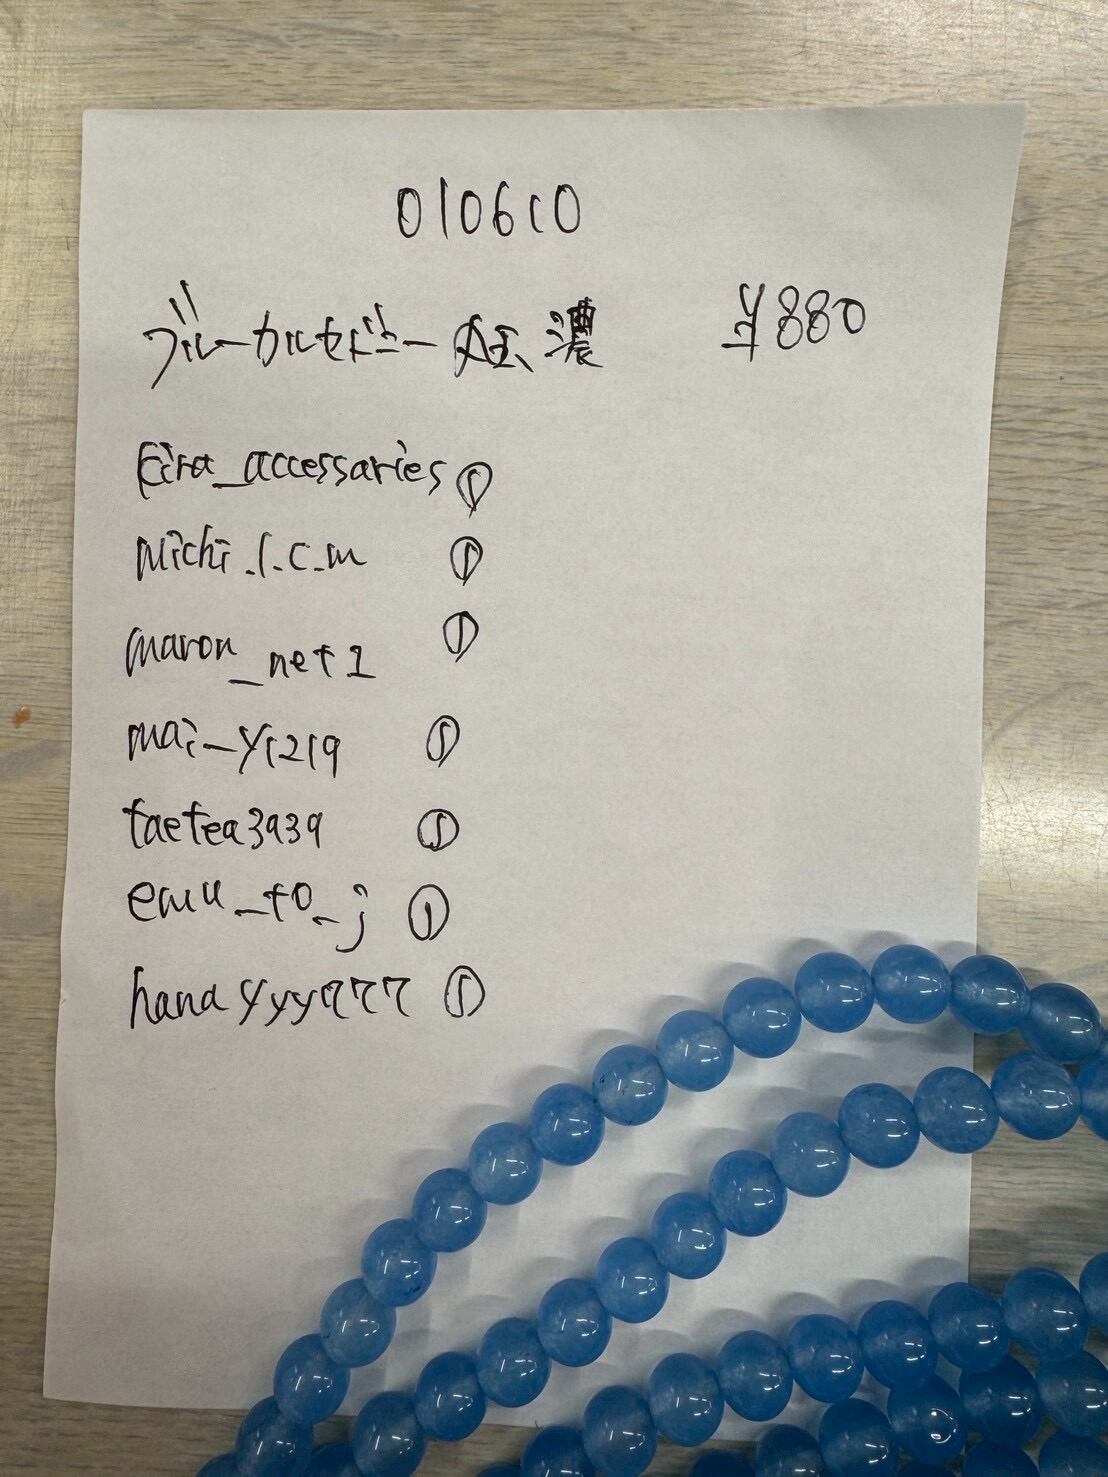 010610
ブルーカルセドニー 丸玉 濃 ¥880
kira_accessaries ①
michi_l.c.m ①
maron_net1 ①
mai_y1219 ①
taetea3939 ①
emu_to_j ①
hanayyy777 ①